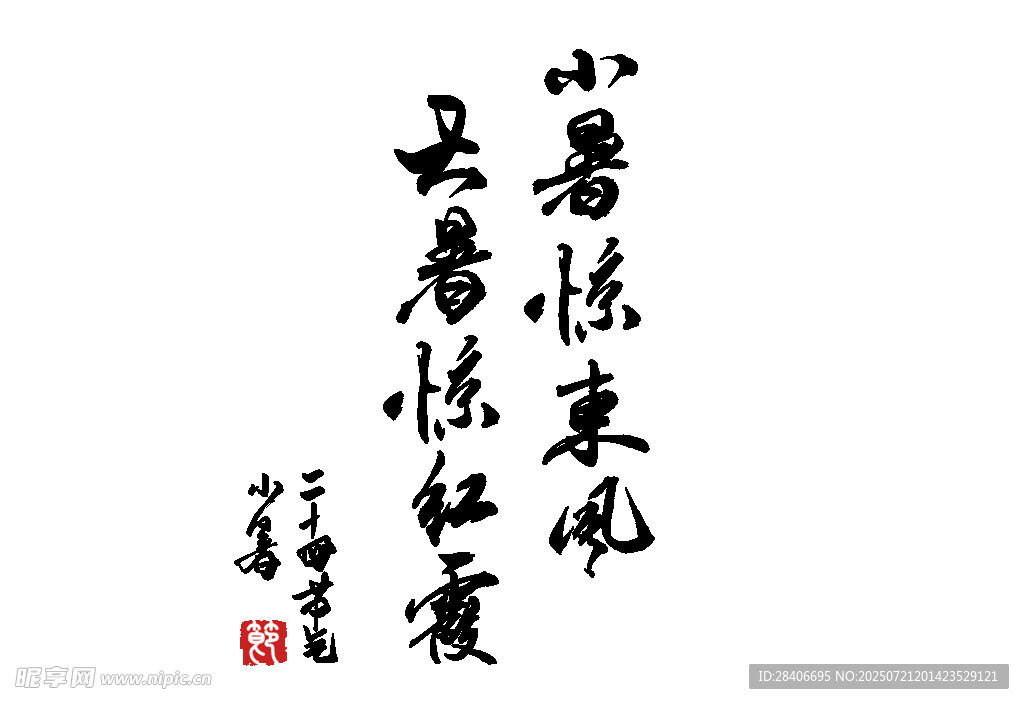 小暑惊東風
大暑惊红霞
二十四节气
小暑
節
昵享网 www.nipic.cn
ID:28406695 NO:20250721201423529121